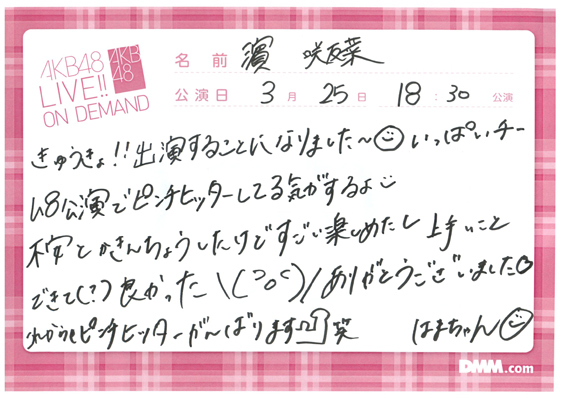 AKB48
LIVE!!
ON DEMAND
AKB
48
名前 濵 咲友菜
公演日 3月 25日 18:30 公演
きゅうきょ!!出演することになりました〜☺いっぱいチー
ム8公演でピンチヒッターしてる気がするよ
不安とかきんちょうしたけどすごい楽しめたし上手いこと
できて(?)良かった\(°o°)/ありがとうございました
これからもピンチヒッターがんばります 笑 はまちゃん☺
DMM.com